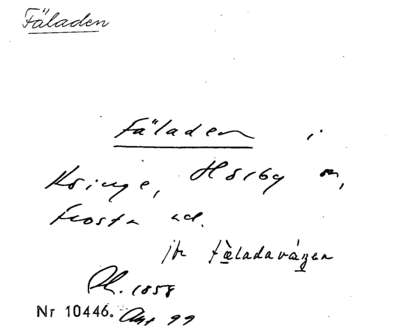 Fäladen
Fäladen i
Kringe, Hörby sn,
Frosta hd.
jfr fäladavägen
1858
Nr 10446.